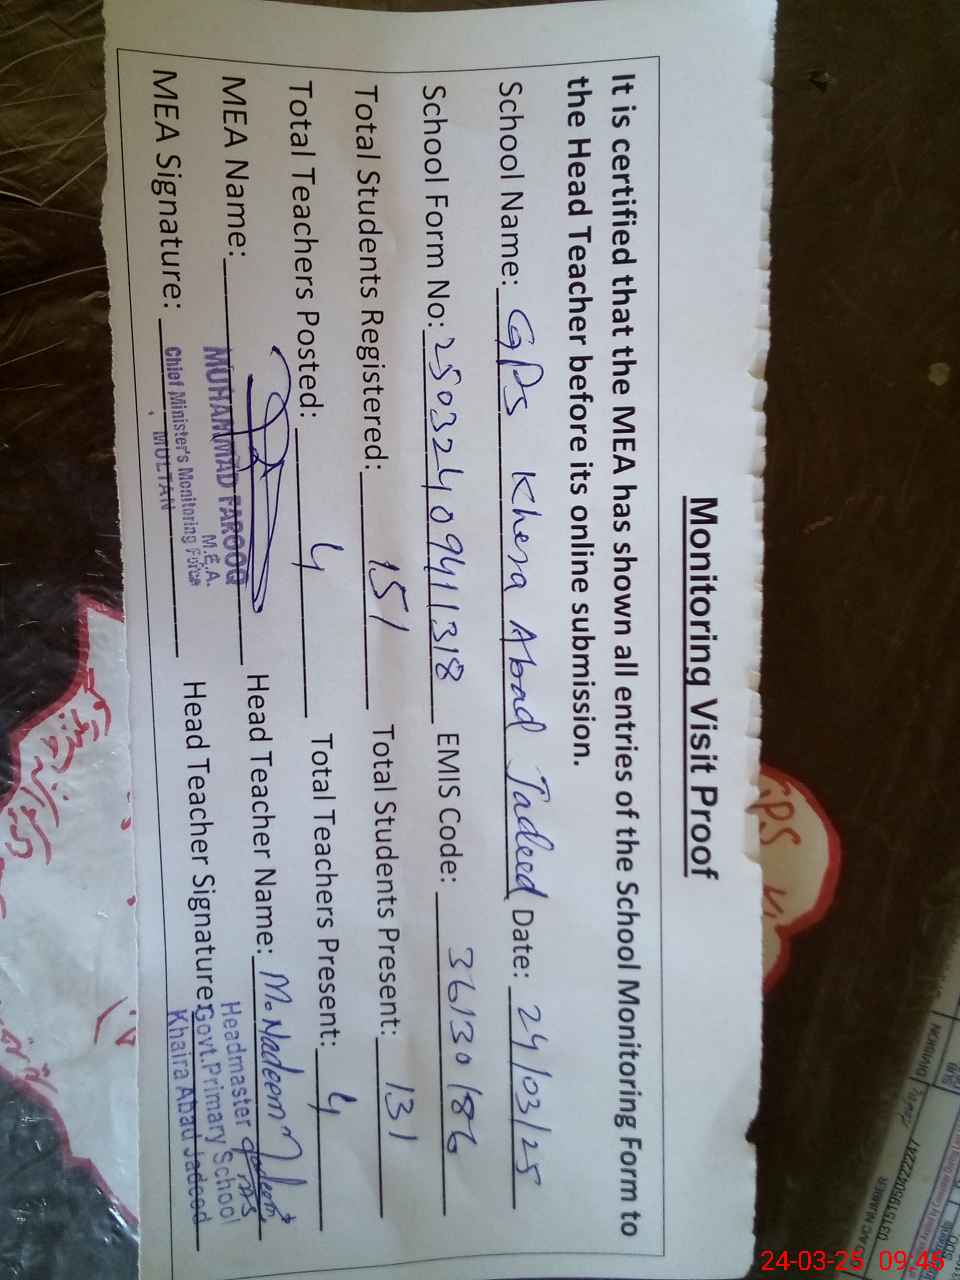 Monitoring Visit Proof
It is certified that the MEA has shown all entries of the School Monitoring Form to
the Head Teacher before its online submission.
School Name: GPS Khera Abad Jadeed Date: 24/03/25
School Form No: 250324094131 8 EMIS Code: 36130186
Total Students Registered: 151 Total Students Present: 131
Total Teachers Posted: 4 Total Teachers Present: 4
MEA Name: MUHAMMAD FAROOQ Head Teacher Name: M. Nadeem
M.E.A.
Chief Minister's Monitoring Force
MULTAN
MEA Signature: Head Teacher Signature:
Headmaster
Govt.Primary School
Khaira Abad Jadeed
GPS
24-03-25 09:45